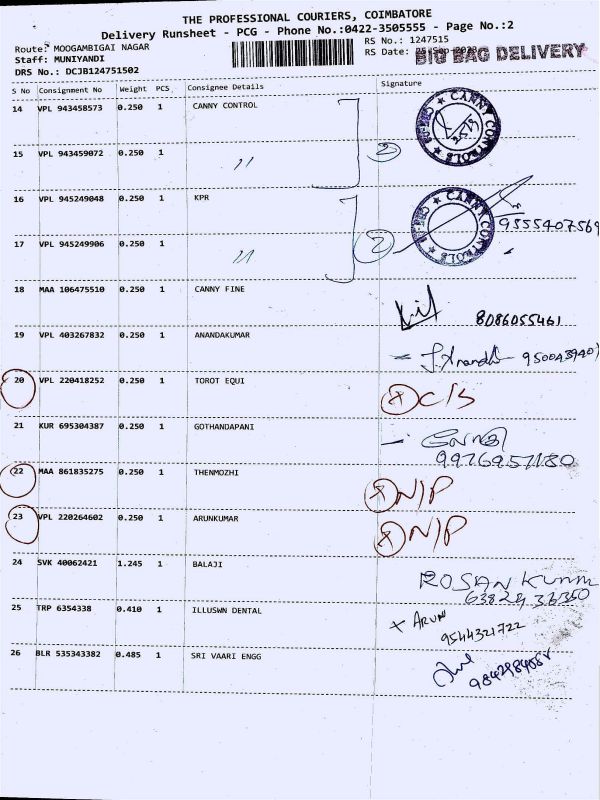 THE PROFESSIONAL COURIERS, COIMBATORE
Delivery Runsheet - PCG - Phone No.:0422-3505555 - Page No.:2
Route: MOOGAMBIGAI NAGAR
RS No.: 1247515
Staff: MUNIYANDI
RS Date:
BIG BAG DELIVERY
DRS No.: DCJB124751502
S No Consignment No Weight PCS Consignee Details Signature
14 VPL 943458573 0.250 1 CANNY CONTROL
CANNY CONTROLS
15 VPL 943459072 0.250 1 〃 2
16 VPL 945249048 0.250 1 KPR
CANNY CONTROLS
9555407569
17 VPL 945249906 0.250 1 〃 2
18 MAA 106475510 0.250 1 CANNY FINE
8086055461
19 VPL 403267832 0.250 1 ANANDAKUMAR
20 VPL 220418252 0.250 1 TOROT EQUI C/S
21 KUR 695304387 0.250 1 GOTHANDAPANI
9976957180
22 MAA 861835275 0.250 1 THENMOZHI N/P
23 VPL 220264602 0.250 1 ARUNKUMAR N/P
24 SVK 40062421 1.245 1 BALAJI
ROSAN
25 TRP 6354338 0.410 1 ILLUSWN DENTAL
ARUN
9544321722
26 BLR 535343382 0.485 1 SRI VAARI ENGG